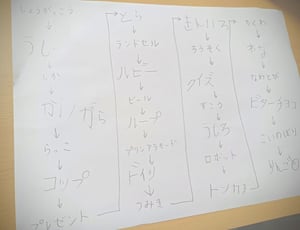 しょうがっこう
↓
うし
↓
しか
↓
かいがら
↓
らっこ
↓
コップ
↓
プレゼント
とら
↓
ランドセル
↓
ルビー
↓
ビール
↓
ループ
↓
プリンアラモード
↓
ドイツ
↓
つみき
↓
ろうそく
↓
クイズ
↓
ずこう
↓
うしろ
↓
ロボット
↓
トンカチ
ちくわ
↓
わな
↓
なわとび
↓
ビターチョコ
↓
こいのぼり
↓